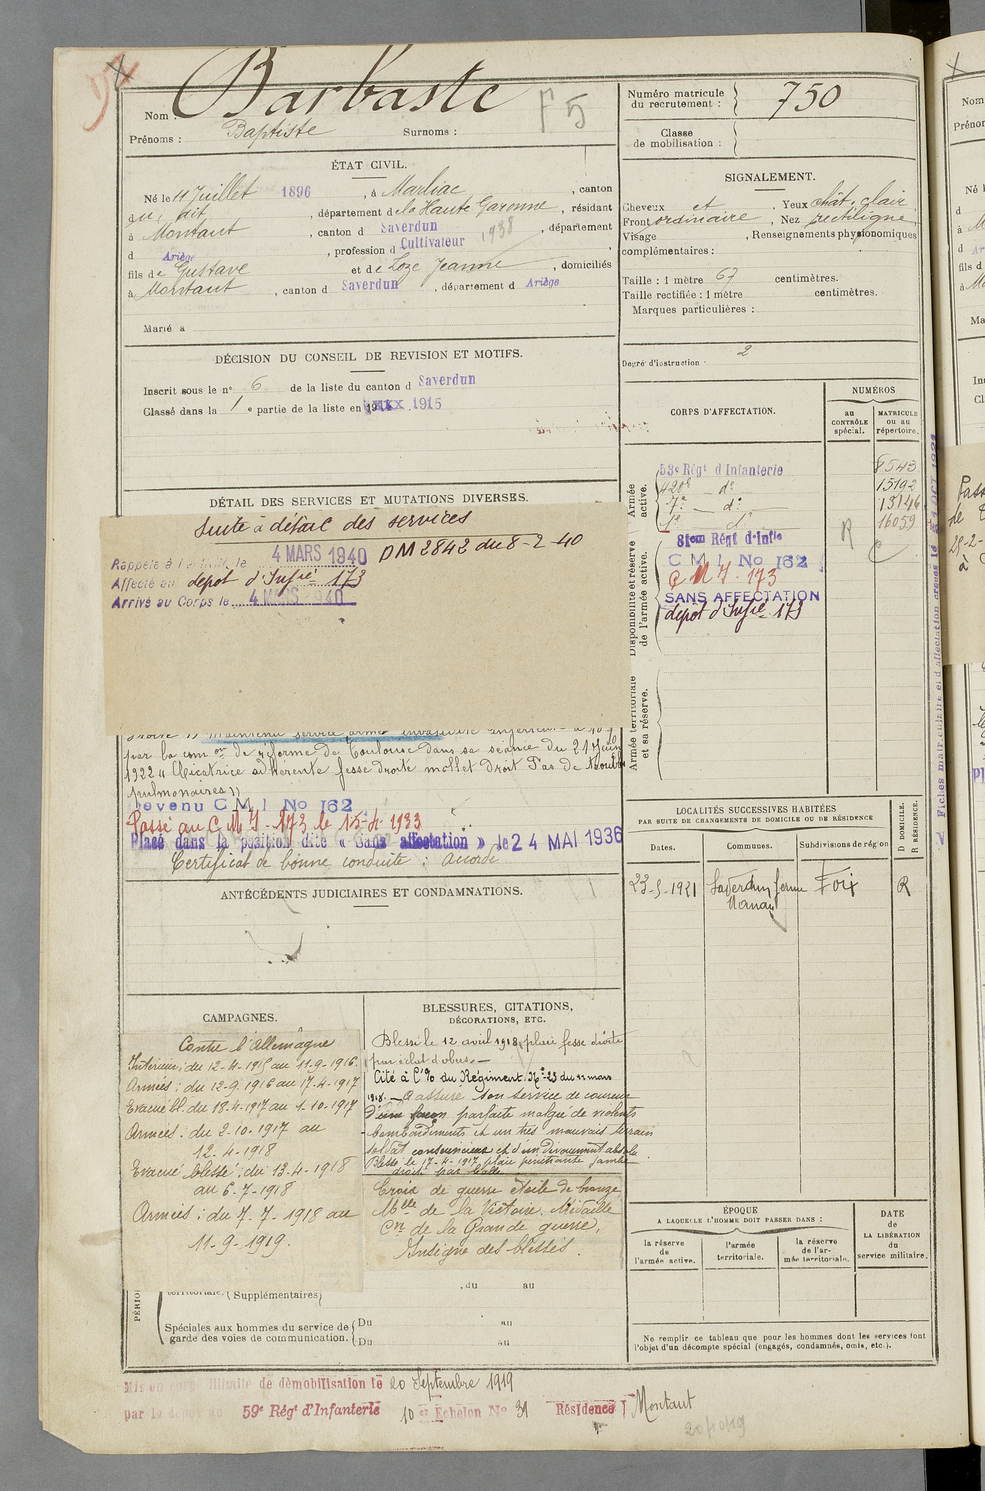 Nom Barbaste F 5
Prénoms : Baptiste Surnoms :
Numéro matricule du recrutement : 750
Classe de mobilisation :
ÉTAT CIVIL.
Né le 11 Juillet 1896, à Marliac, canton
du dit, département de la Haute Garonne, résidant
à Montaut, canton d Saverdun, département
d Ariège, profession d Cultivateur 1938
fils de Gustave et de Loze Jeanne, domiciliés
à Montaut, canton d Saverdun, département d Ariège
Marié à
SIGNALEMENT.
Cheveux et, Yeux chât. clair
Front ordinaire, Nez rectiligne
Visage, Renseignements physionomiques
complémentaires :
Taille : 1 mètre 67 centimètres.
Taille rectifiée : 1 mètre centimètres.
Marques particulières :
Degré d'instruction : 2
DÉCISION DU CONSEIL DE REVISION ET MOTIFS.
Inscrit sous le nº 6 de la liste du canton d Saverdun
Classé dans la 1 e partie de la liste en 1915
DÉTAIL DES SERVICES ET MUTATIONS DIVERSES.
Suite à détail des services
Rappelé à l'activité le 4 MARS 1940 DM 2842 du 8-2-40
Affecté au dépôt d'Infie 173
Arrivé au Corps le 4 MARS 1940
droite maintenu service armé invalidité inférieure à 10%
par la comon de réforme de Toulouse dans sa séance du 21 Juin
1922 "Cicatrice adhérente fesse droite mollet droit Pas de troubles
pulmonaires"
Devenu C M I No 162
Passé au C M I 173 le 15-4-1933
Placé dans la position dite « Sans affectation » le 24 MAI 1936
Certificat de bonne conduite : accordé
CORPS D'AFFECTATION.
NUMÉROS
au CONTRÔLE spécial.
MATRICULE ou au répertoire.
Armée active.
Disponibilité et réserve de l'armée active.
Armée territoriale et sa réserve.
53e Régt d'Infanterie 8543
420e _ do _ 15192
7e _ do _ 13146
1e do 16059
81em Régt d'Infie R C
C M I No 162
C M I 173
SANS AFFECTATION
dépôt d'Infie 173
ANTÉCÉDENTS JUDICIAIRES ET CONDAMNATIONS.
LOCALITÉS SUCCESSIVES HABITÉES
PAR SUITE DE CHANGEMENTS DE DOMICILE OU DE RÉSIDENCE
Dates. Communes. Subdivisions de région
D DOMICILE. R RÉSIDENCE.
23-5-1921 Saverdun ferme Foix R
CAMPAGNES.
Contre l'Allemagne
Intérieur : du 12-4-1915 au 11-9-1916.
Armées : du 12-9-1916 au 17-4-1917
Evacué bl. du 18-4-1917 au 1-10-1917
Armées : du 2-10-1917 au
12-4-1918
Evacué blessé : du 13-4-1918
au 6-7-1918
Armées : du 7-7-1918 au
11-9-1919.
BLESSURES, CITATIONS,
DÉCORATIONS, ETC.
Blessé le 12 avril 1918, plaie fesse droite
par éclat d'obus.—
Cité à l'O/ du Régiment No 23 du 11 mars
1918. — A assuré son service de coureur
d'une façon parfaite malgré de violents
bombardements et un très mauvais terrain
soldat consciencieux et d'un dévouement absolu
Blessé le 17-4-1917 plaie pénétrante jambe
droite par balle
Croix de guerre étoile de bronze
Mlle de la Victoire. Médaille
Cve de la Grande guerre,
Insigne des blessés.
, du au
territoriale. (Supplémentaires)
Spéciales aux hommes du service de garde des voies de communication.
Du au
Du au
ÉPOQUE
A LAQUELLE L'HOMME DOIT PASSER DANS :
la réserve de l'armée active.
l'armée territoriale.
la réserve de l'armée territoriale.
DATE de LA LIBÉRATION du service militaire.
Ne remplir ce tableau que pour les hommes dont les services font
l'objet d'un décompte spécial (engagés, condamnés, omis, etc.).
Mis en congé illimité de démobilisation le 20 Septembre 1919
par le dépôt du 59e Régt d'Infanterie 10 e Echelon No 31 Résidence Montaut
20/10/19